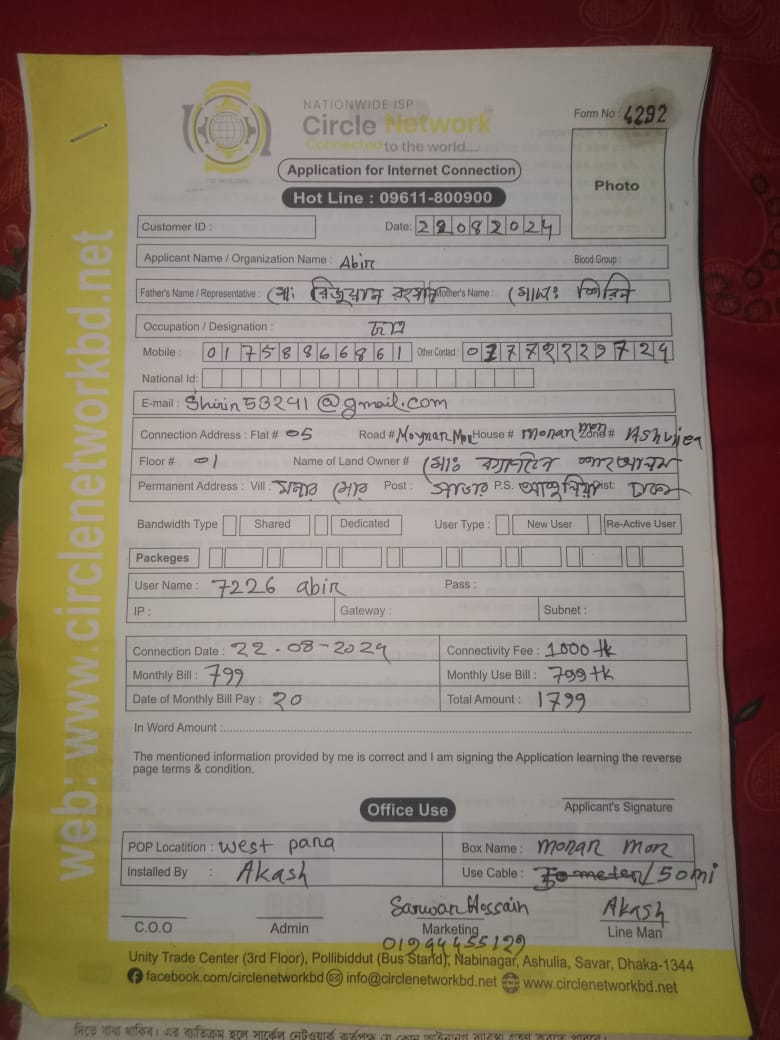 NATIONWIDE ISP
Circle Network
Connected to the world.....
Form No : 4292
Application for Internet Connection
Hot Line : 09611-800900
Photo
Customer ID :
Date: 22082024
Applicant Name / Organization Name : Abir
Blood Group :
Father's Name / Representative : মো: রিজুয়ান রহমান Mother's Name : মোসাঃ শিরিন
Occupation / Designation :
Mobile : 01758866861 Other Contact :
National Id:
E-mail : Shirin53241@gmail.com
Connection Address : Flat # 05 Road # Moynar Mor House # monar mor Zone # Ashuliea
Floor # 01 Name of Land Owner # মোঃ ক্যাপটেন শাহআলম
Permanent Address : Vill : মনার মোর Post : সাভার P.S. আশুলিয়া Dist: ঢাকা
Bandwidth Type Shared Dedicated User Type : New User Re-Active User
Packeges
User Name : 7226 abir Pass :
IP : Gateway : Subnet :
Connection Date : 22-08-2024 Connectivity Fee : 1000 tk
Monthly Bill : 799 Monthly Use Bill : 799 tk
Date of Monthly Bill Pay : 20 Total Amount : 1799
In Word Amount :
The mentioned information provided by me is correct and I am signing the Application learning the reverse
page terms & condition.
Applicant's Signature
Office Use
POP Locatition : west para Box Name : monar mor
Installed By : Akash Use Cable : /50mi
Sarwar Hossain Akash
C.O.O Admin Marketing Line Man
Unity Trade Center (3rd Floor), Pollibiddut (Bus Stand), Nabinagar, Ashulia, Savar, Dhaka-1344
facebook.com/circlenetworkbd info@circlenetworkbd.net www.circlenetworkbd.net
web: www.circlenetworkbd.net